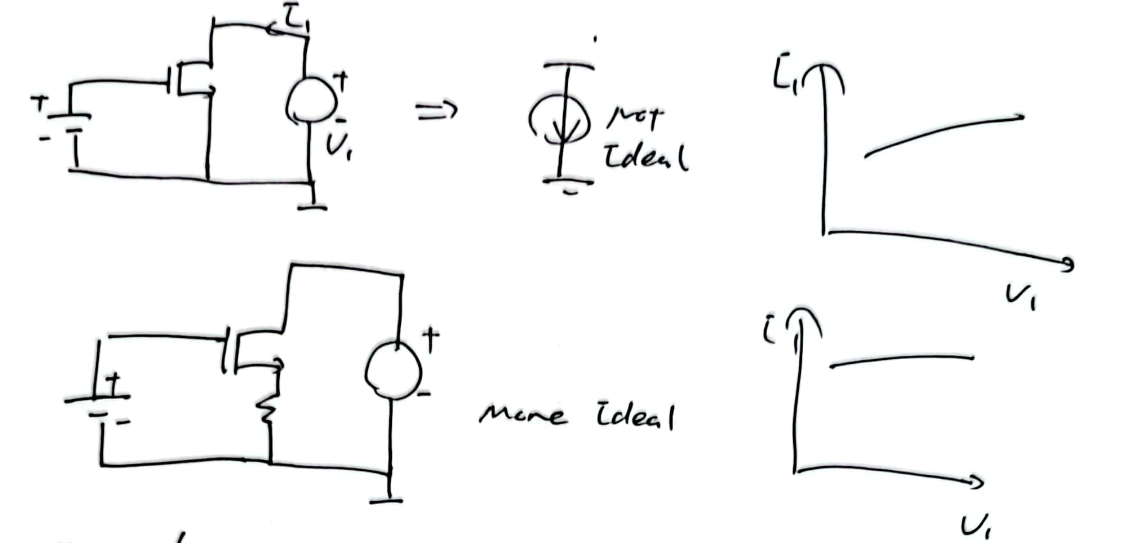 I₁
+
+
-
-
V₁
Not
Ideal
I₁
V₁
+
-
+
-
More Ideal
I
V₁